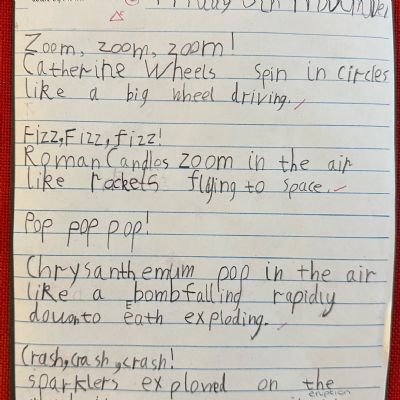 Friday 8th November
Zoom, zoom, zoom!
Catherine Wheels spin in circles
like a big wheel driving.
Fizz, Fizz, fizz!
Roman Candles zoom in the air
like rockets flying to space.
Pop pop pop!
Chrysanthemum pop in the air
like a bomb falling rapidly
down to Eath exploding.
Crash, crash, crash!
sparklers exploved on the
eruption